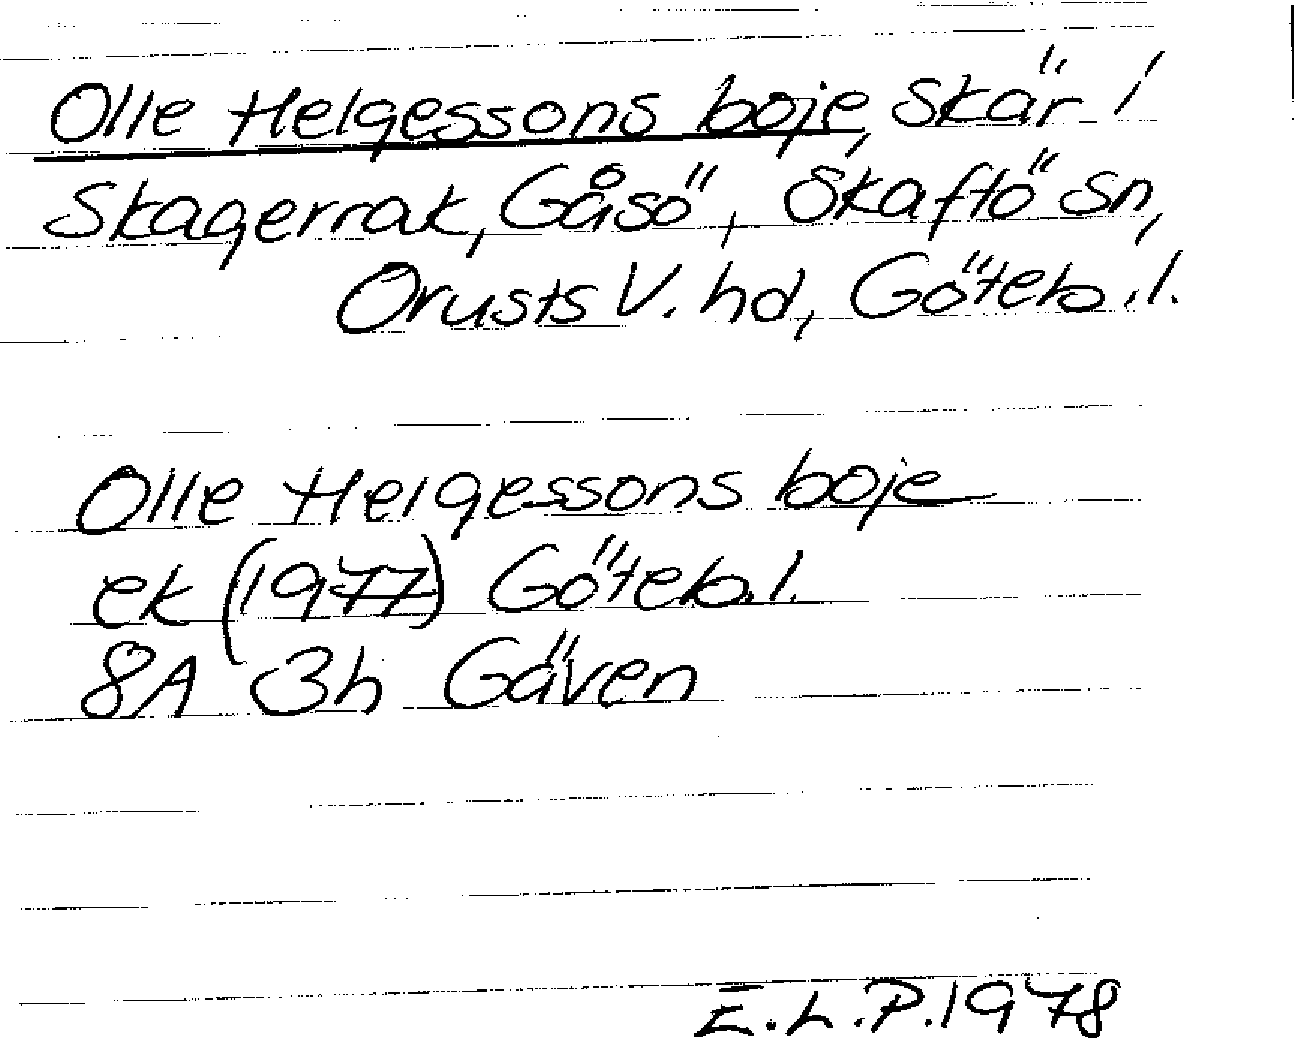 Olle Helgessons boje, skär i
Skagerrak, Gåsö, Skaftö sn,
Orusts V. hd, Göteb.l.
Olle Helgessons boje
ek (1977) Göteb.l.
8A 3h Gäven
E.L.P.1978